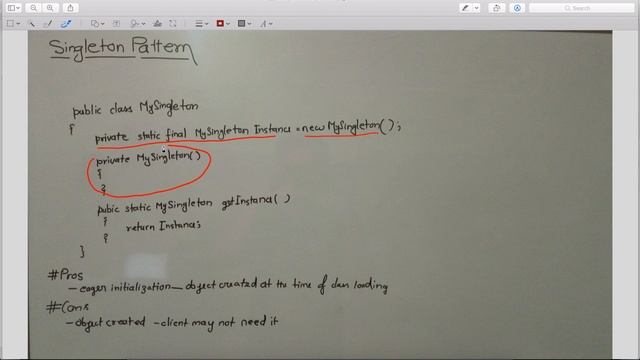 Search
Singleton Pattern
public class MySingleton
{
private static final MySingleton Instance = new MySingleton();
private MySingleton()
{
}
pubic static MySingleton getInstance()
{
return Instance;
{
}
#Pros
- eager initialization - object created at the time of class loading
#Cons
- object created - client may not need it